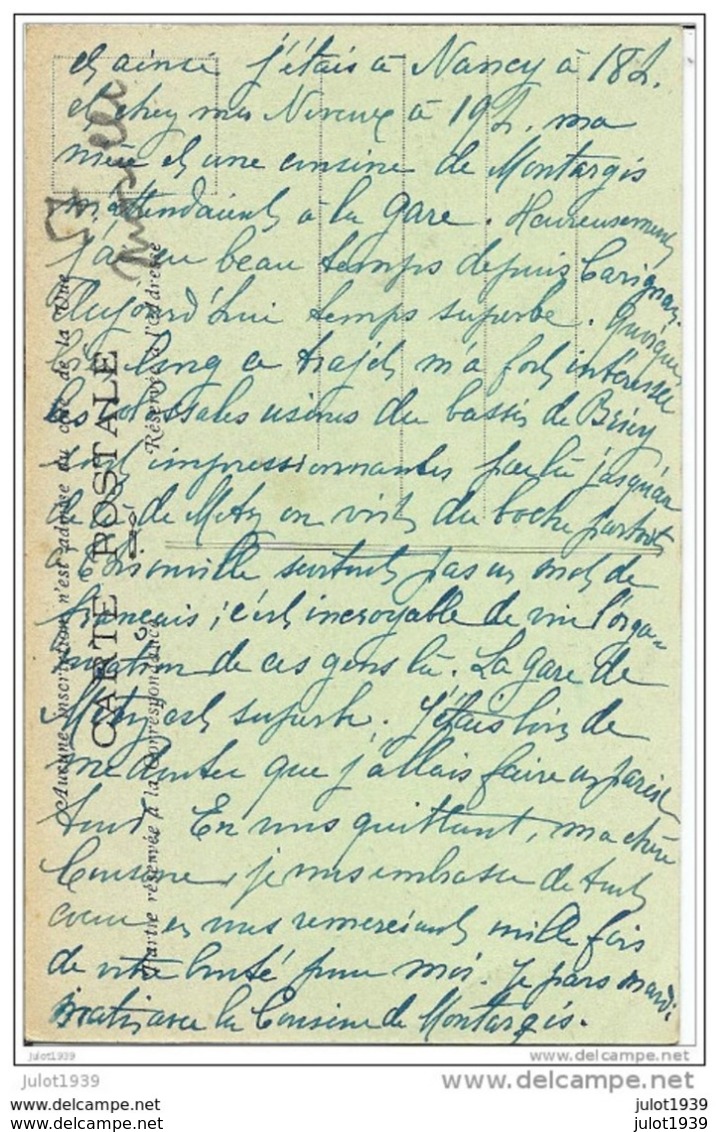 et ainsi j'étais à Nancy à 18h.
et chez mes Neveux à 19h. ma
mère et une cousine de Montargis
m'attendaient à la gare. Heureusement
j'ai eu beau temps depuis Carignan.
Aujourd'hui temps superbe. Quoique
long ce trajet m'a fort intéressée
les colossales usines du bassin de Briey
sont impressionnantes par là jusqu'au
de Metz on voit du boche partout
Thionville surtout pas un mot de
français ; c'est incroyable de voir l'orga-
nisation de ces gens là. La gare de
Metz est superbe. J'étais loin de
me douter que j'allais faire un pareil
tour. En vous quittant, ma chère
Cousine, je vous embrasse de tout
coeur en vous remerciant mille fois
de votre bonté pour moi. Je pars mardi
matin avec la Cousine de Montargis.
57
Aucune inscription n'est admise du côté de la Vue
CARTE POSTALE
Partie réservée à la Correspondance
Réservée à l'adresse
julot1939
delcampe.net
julot1939
delcampe.net
julot1939
julot1939
julot1939
julot1939